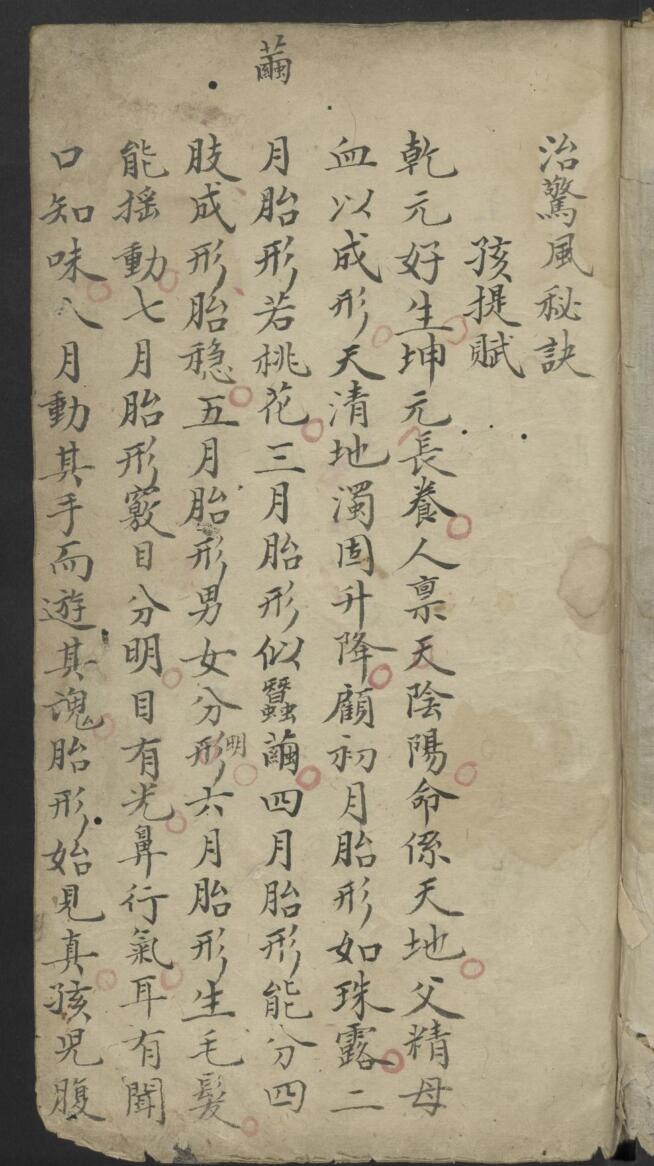 治驚風秘訣
孩提賦
乾元好生坤元長養人禀天陰陽命係天地父精母
血以成形天清地濁固升降顧初月胎形如珠露二
繭
月胎形若桃花三月胎形似蠶繭四月胎形能分四
肢成形胎穏五月胎形男女分形明六月胎形生毛髮
能揺動七月胎形竅目分明目有光鼻行氣耳有聞
口知味八月動其手而遊其魂胎形始見真孩児腹